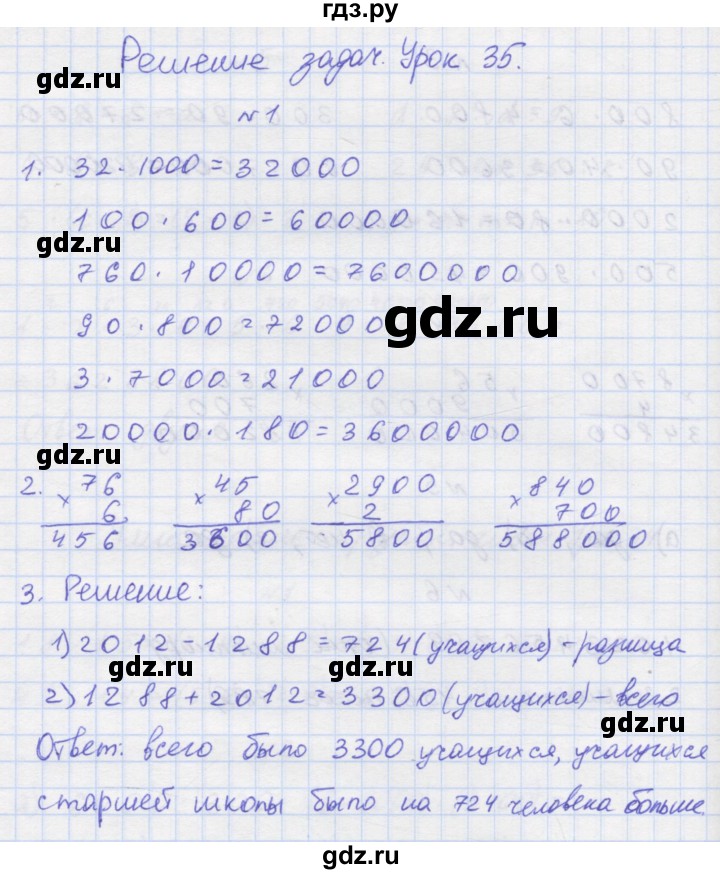 гдз.ру
Решение задач. Урок 35.
gdz.ru
№1
1. 32·1000=32000
100·600=60000
gdz.ru
760·10000=7600000
90·800=72000
gdz.ru
3·7000=21000
20000·180=3600000
2. ×76 ×45 ×2900 ×840
6 80 2 700
456 3600 5800 588000
3. Решение:
1) 2012-1288=724 (учащихся) - разница
gdz.ru gdz.ru
2) 1288+2012=3300 (учащихся) - всего
gdz.ru
Ответ: всего было 3300 учащихся, учащихся
старшей школы было на 724 человека больше.
gdz.ru